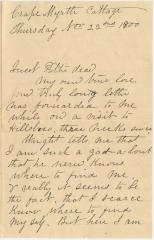 Crape Myrtle Cottage
Thursday Nov 22nd 1800
Sweet Pattie dear,
My own true love
Your truly lovely letter
was forwarded to me
while on a visit to
Hillsboro, three weeks since
thought tell me that I
am such a gad-about
that he never knows
where to find me
& really it seems to be
the fact, that I scarce
know where to find
my self. But here I am